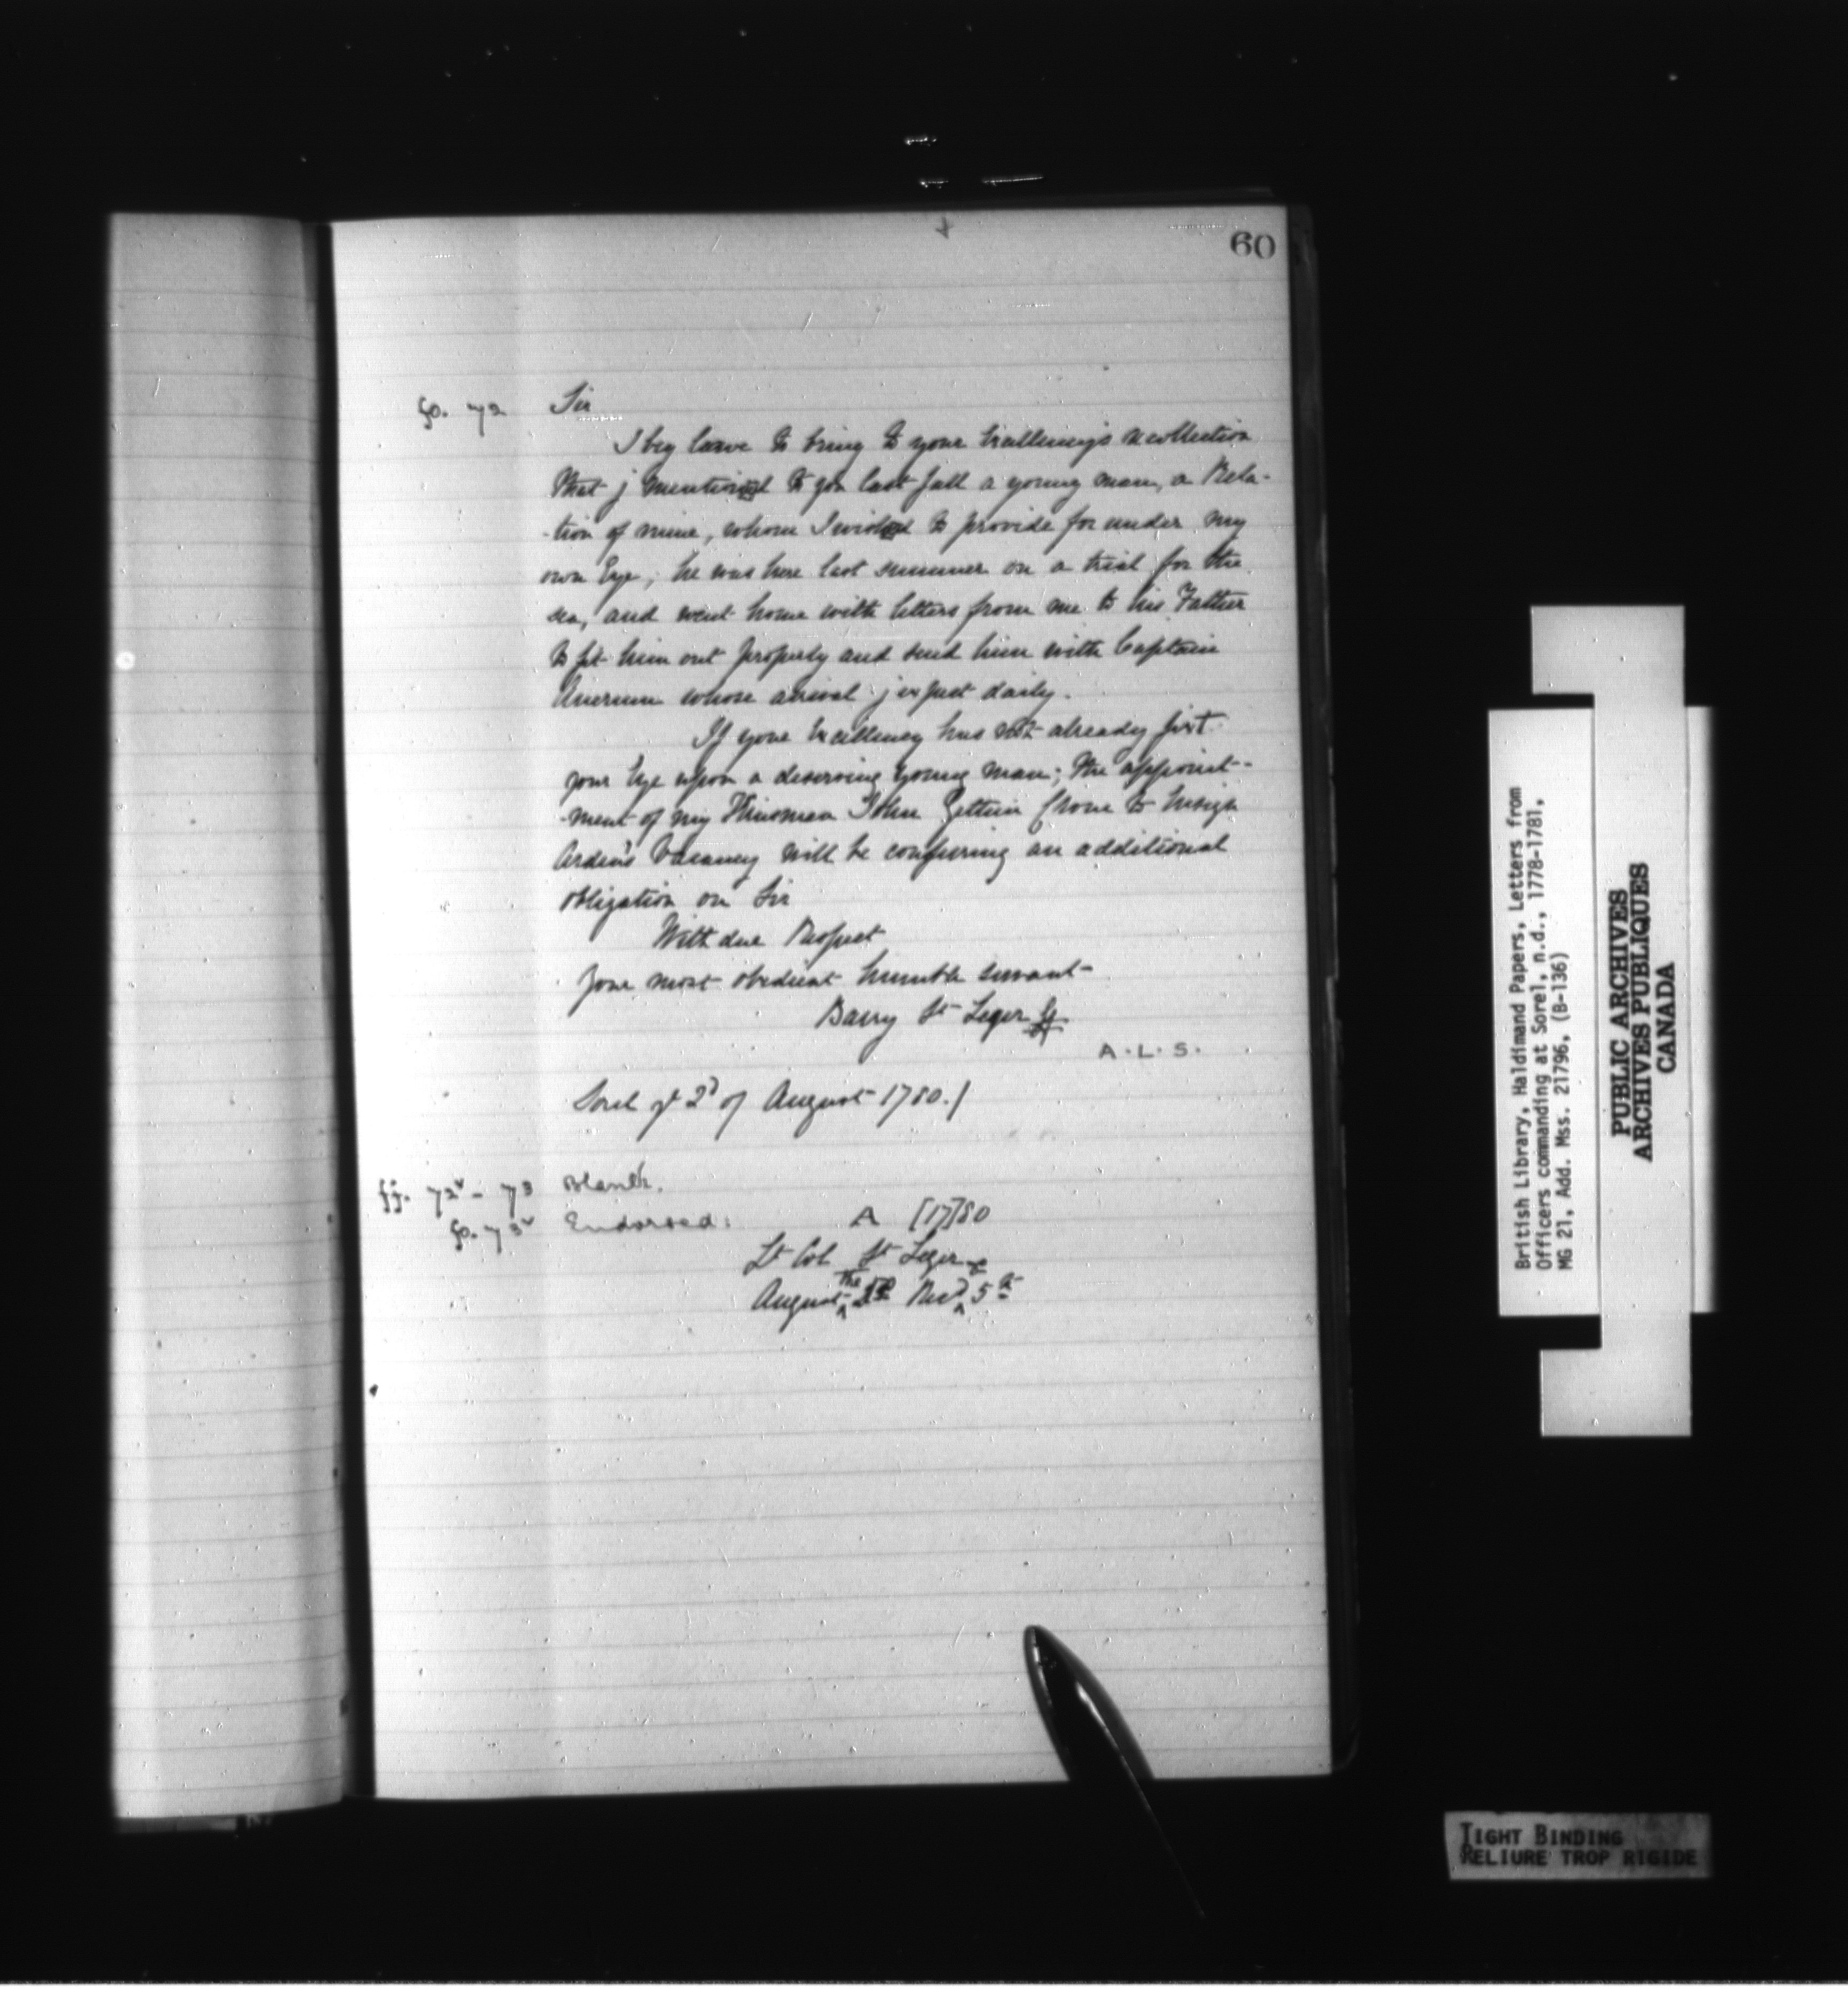 60
fo. 72 Sir
I beg leave to bring to your Excellency's recollection
that j mentioned to you last fall a young man, a Rela-
-tion of mine, whom I wished to provide for under my
own Eye; he was here last summer on a trial for the
sea, and went home with letters from me to his Father
to fit him out properly and send him with Captain
whose arrival j expect daily.
If your Excellency has not already fixt
your Eye upon a deserving young man; the appoint-
-ment of my Kinsman John to Ensign
Arden's Vacancy will be conferring an additional
obligation on Sir
With due Respect
your most obedient humble servant
Barry St Leger
A.L.S.
Sorel ye 2d of August 1780./
ff. 72v - 73 Blank.
fo. 73v Endorsed: A [17]80
Lt Col St Leger
August the Recd 5th
British Library, Haldimand Papers, Letters from
Officers commanding at Sorel, n.d., 1778-1781,
MG 21, Add. Mss. 21796, (B-136)
PUBLIC ARCHIVES
ARCHIVES PUBLIQUES
CANADA
TIGHT BINDING
RELIURE TROP RIGIDE